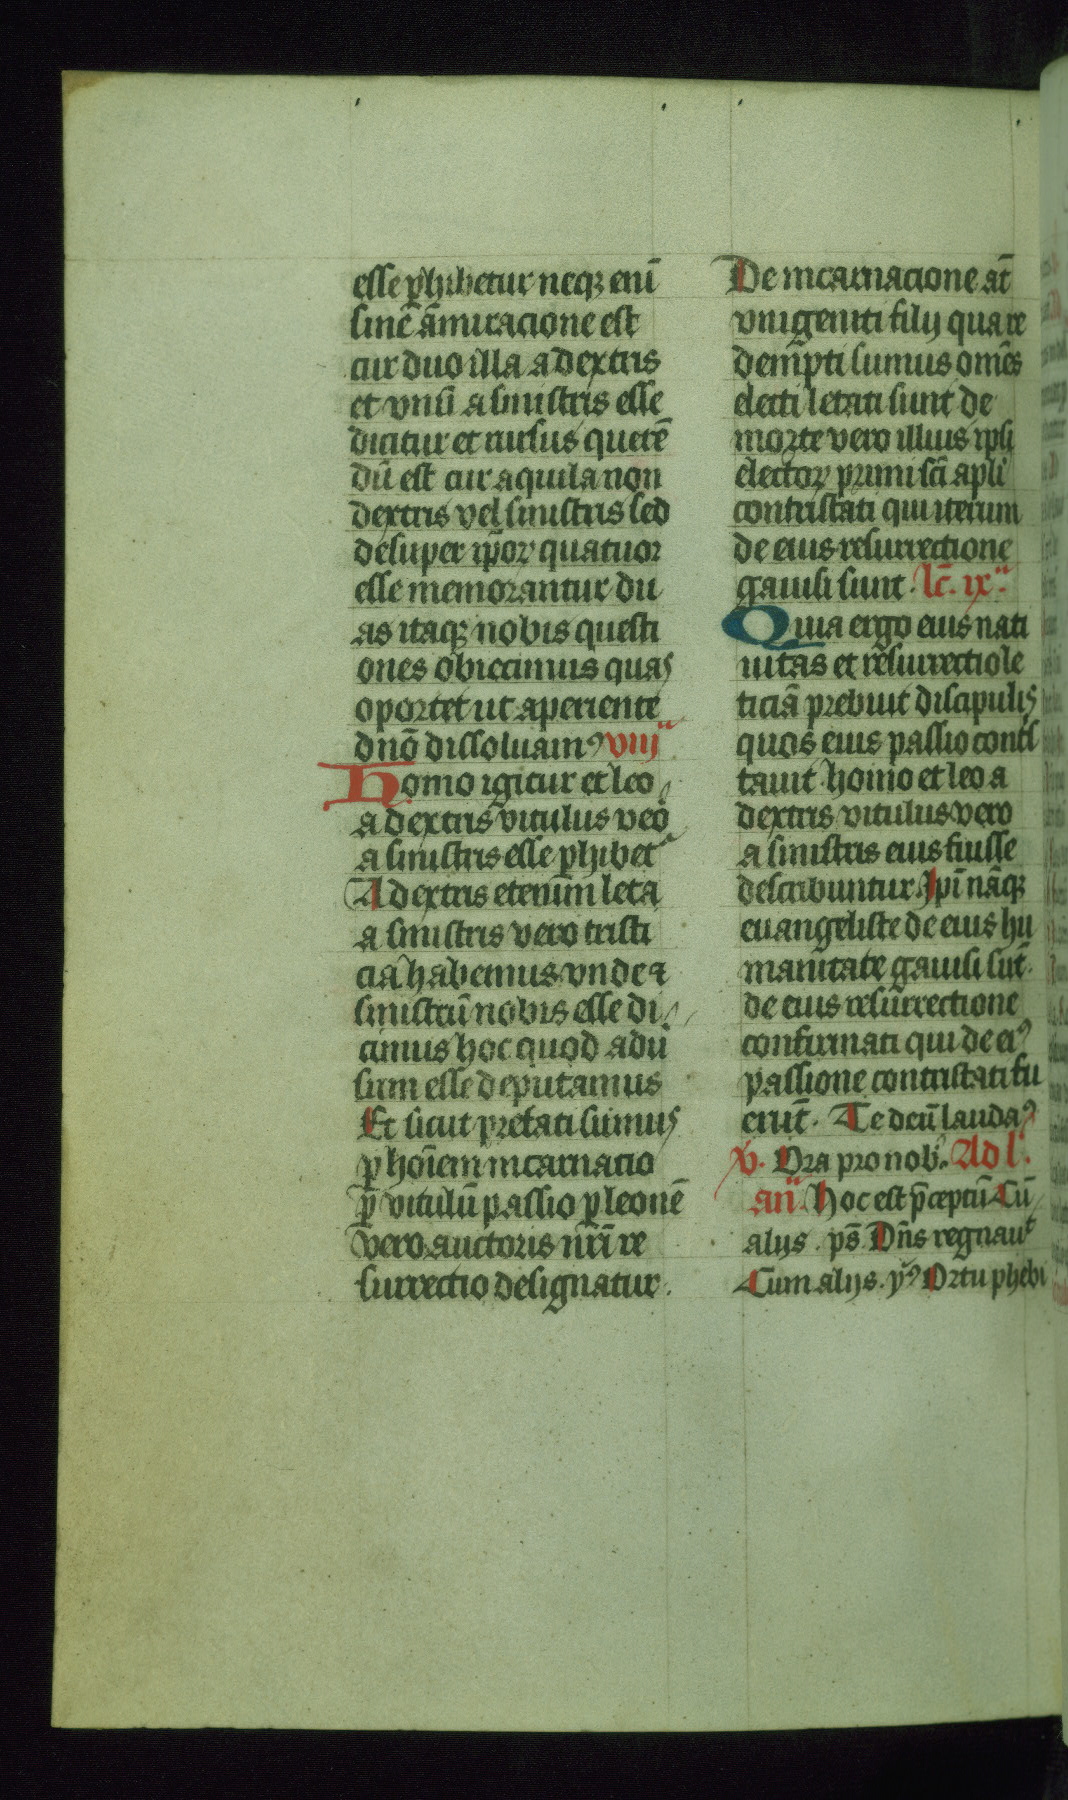 esse ꝑhibetur neqꝫ eni̅
sine a̅miracione est
cur duo illa a dextris
et vnu̅ a sinistris esse
dicitur et rursus quere̅
du̅ est cur aquila non
dextris vel sinistris sed
desuper ip̅oꝝ quatuor
esse memorantur du
as itaqꝫ nobis questi
ones obiecimus quas
oportet ut aperiente
dn̅o dissoluamꝰ viij
Homo igitur et leo
a dextris vitulus ve̅o
a sinistris esse ꝑhibet᷑
A dextris eteni̅m leta
a sinistris vero tristi
cia̅ habemus vnde a
sinistru̅ nobis esse di
cimus hoc quod adu̅
sum esse deputamus
Et sicut prefati sumus
ꝑ ho̅iem incarnatio
ꝑ vitulu̅ passio ꝑ leone̅
vero auctoris nr̅i re
surrectio designatur.
De incarnacione at̅
vnigeniti filij qua re
dem̅pti sumus om̅es
electi letati sunt de
morte vero illius ipsi
electoꝝ primi sc̅i apl̅i
contristati qui iterum
de eius resurrectione
gauisi sunt. lc̅. ix
Quia ergo eius nati
uitas et resurrectio le
ticia̅ prebuit discipulis
quos eius passio cont's
tauit homo et leo a
dextris vitulus vero
a sinistris eius fuisse
describuntur. Ip̅i na̅qꝫ
euangeliste de eius hu
manitate gauisi su̅t
de eius resurrectione
confirmati qui de eiꝰ
passione contristati fu
eru̅t. Te deu̅ laudaꝰ
v̅. Ora pro nob'. Ad l'.
an̅ Hoc est p̅ceptu̅ Cu̅
alijs. ps̅ Dn̅s regnauͭ
Cum alijs. yꝰ Ortu phebi